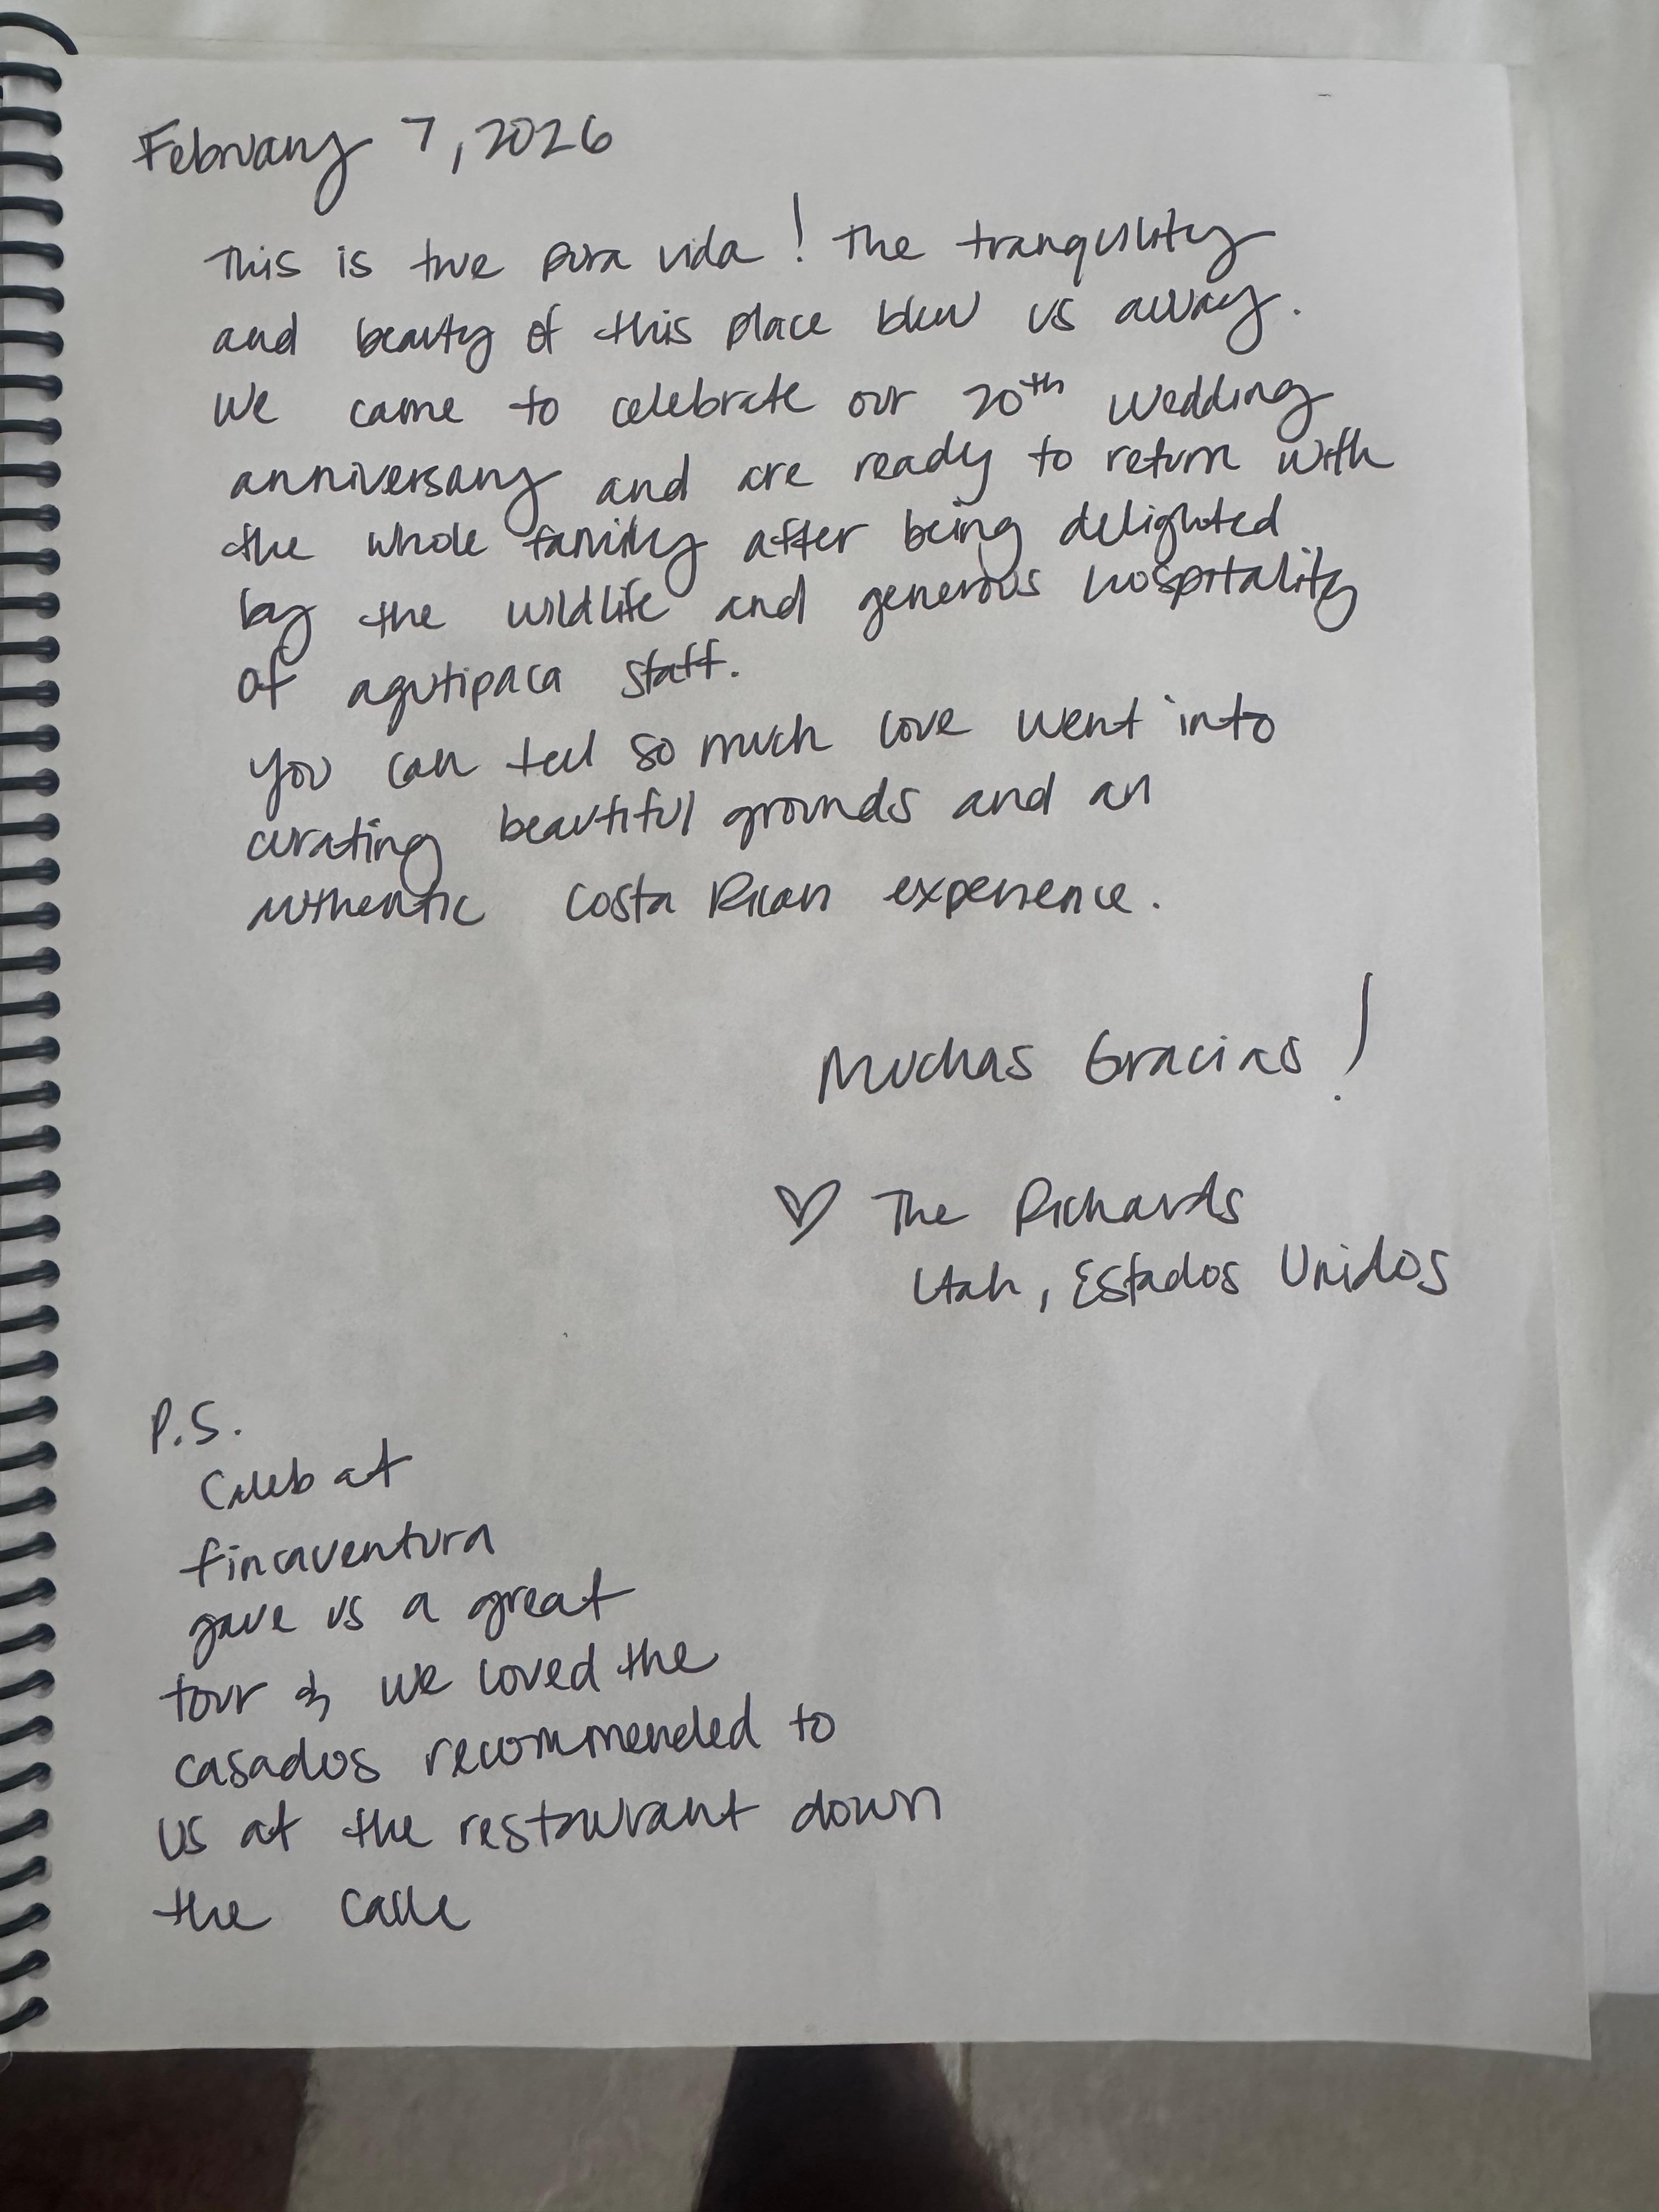 February 7, 2026
This is true pura vida! The tranquility
and beauty of this place blew us away.
We came to celebrate our 20th wedding
anniversary and are ready to return with
the whole family after being delighted
by the wildlife and generous hospitality
of agutipaca staff.
You can feel so much love went into
curating beautiful grounds and an
authentic Costa Rican experience.
Muchas Gracias!
♡ The Richards
Utah, Estados Unidos
P.S.
Caleb at
fincaventura
gave us a great
tour & we loved the
casados recommended to
us at the restaurant down
the calle